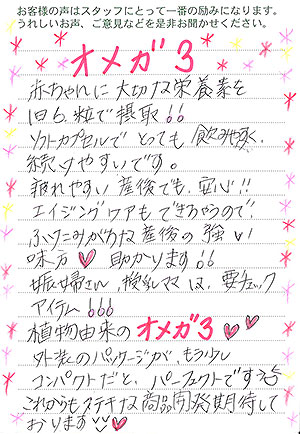 お客様の声はスタッフにとって一番の励みになります。
うれしいお声、ご意見などを是非お聞かせください。
オメガ3
赤ちゃんに大切な栄養素を
1日6粒で摂取!!
ソフトカプセルでとっても飲みやすく
続けやすいです。
疲れやすい産後でも安心!!
エイジングケアもできちゃうので
ふけこみがちな産後の強い
味方♥助かります!!
妊婦さん、授乳ママは、要チェック
アイテム!!!
植物由来のオメガ3♥♥
外装のパッケージが、もう少し
コンパクトだと、パーフェクトです
これからもステキな商品開発期待して
おります♥